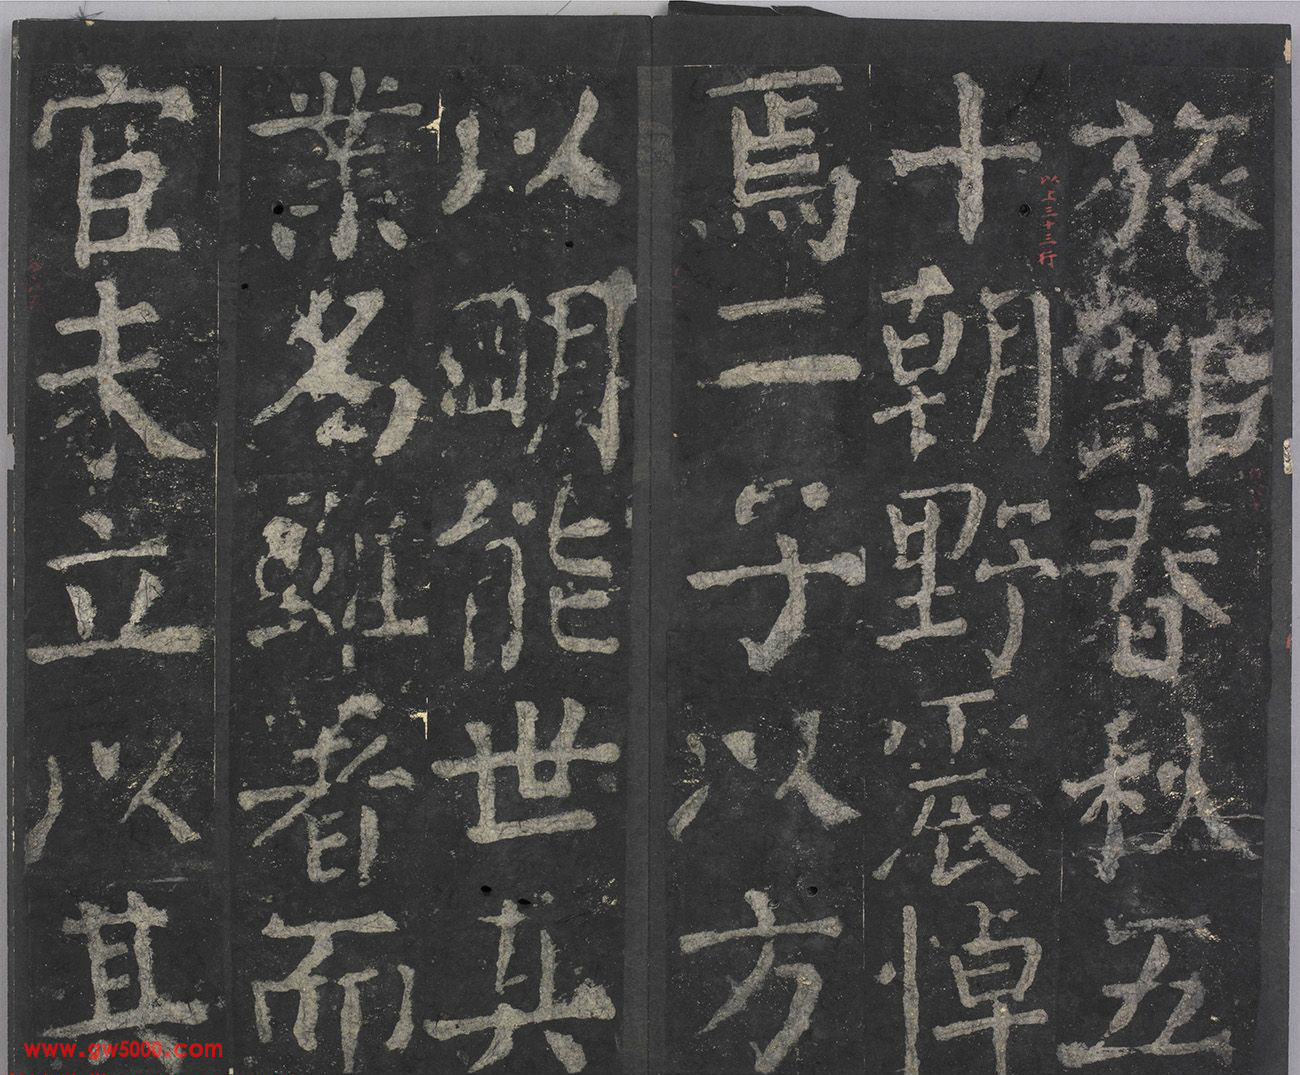 旅館春秋五
十朝野震悼
焉二子以方
以明能世其
業名雖著而
官未立以其
以上三十三行
www.gw5000.com